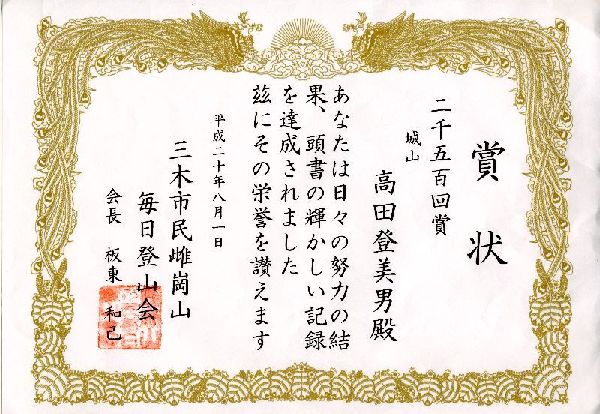 賞状
二千五百回賞
城山
高田登美男殿
あなたは日々の努力の結
果、頭書の輝かしい記録
を達成されました
玆にその栄誉を讃えます
平成二十年八月一日
三木市民雌岡山
毎日登山会
会長 板東 和己